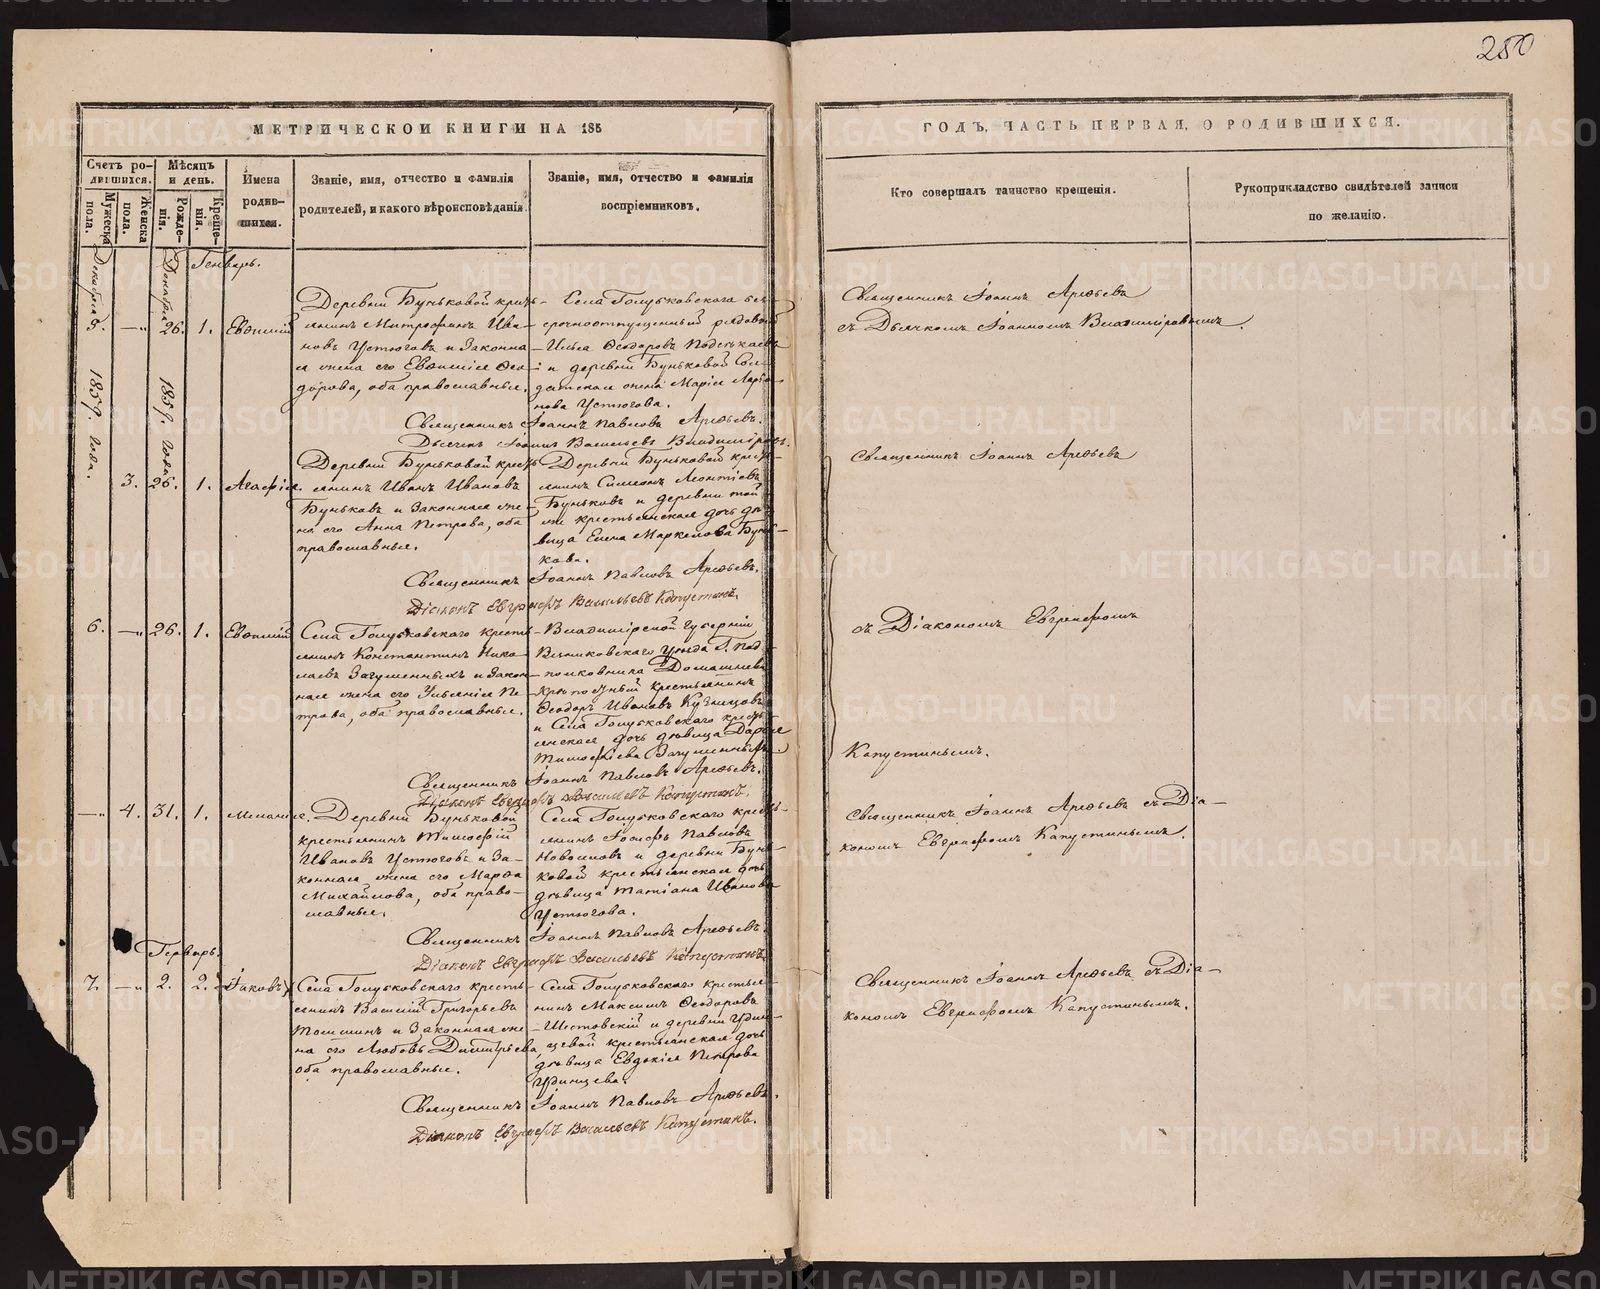 250
МЕТРИЧЕСКОЙ КНИГИ НА 185
ГОДЪ, ЧАСТЬ ПЕРВАЯ, О РОДИВШИХСЯ.
Счетъ ро-
дившихся.
Мужеска
пола.
Женска
пола.
Мѣсяцъ
и день.
Рожде-
нія.
Креще-
нія.
Имена
родив-
шихся.
Званіе, имя, отчество и фамилія
родителей, и какого вѣроисповѣданія.
Званіе, имя, отчество и фамилія
воспріемниковъ.
Кто совершалъ таинство крещенія.
Рукоприкладство свидѣтелей записи
по желанію.
Декабря 1859. года.
Декабря 1859. года.
Генварь.
5. —„ 26. 1. Евѳимій
Деревни Буньковой кресть-
янинъ Митрофанъ Ива-
новъ Устюговъ и законна-
я жена его Евѳимія Ѳео-
дорова, оба православные.
Села Голубковскаго без-
срочноотпущенный рядовой
Илья Ѳеодоровъ
и деревни Буньковой Сол-
датская жена Марія Ларіо-
нова Устюгова.
Священникъ Іоаннъ Павловъ Арефьевъ.
Дьячекъ Іоаннъ Васильевъ Владиміровъ.
Священникъ Іоаннъ Арефьевъ
съ Дьячкомъ Іоанномъ Владиміровымъ.
3. 26. 1. Агафія.
Деревни Буньковой кресть-
янинъ Иванъ Ивановъ
Буньковъ и законная же-
на его Анна Петрова, оба
православные.
Деревни Буньковой кресть-
янинъ Симеонъ Леонтіевъ
Буньковъ и деревни той
же крестьянская дочь дѣ-
вица Елена Маркелова Бунь-
кова.
Священникъ Іоаннъ Павловъ Арефьевъ.
Діаконъ Евграфъ Васильевъ Капустинъ.
Священникъ Іоаннъ Арефьевъ
6. —„ 26. 1. Евѳимій
Села Голубковскаго кресть-
янинъ Константинъ Нико-
лаевъ Загуменныхъ и закон-
ная жена его Ульянія Пе-
трова, оба православные.
Владимірской Губерніи
Вязниковскаго уѣзда Г. под-
полковника Домашнева
крѣпостный крестьянинъ
Ѳеодоръ Ивановъ Кузнецовъ
и Села Голубковскаго кресть-
янская дочь дѣвица Дарья
Тимофѣева Загуменныхъ.
Священникъ Іоаннъ Павловъ Арефьевъ.
Діаконъ Евграфъ Васильевъ Капустинъ.
съ Діакономъ Евграфомъ
Капустинымъ.
—„ 4. 31. 1. Меланія.
Деревни Буньковой
крестьянинъ Тимофей
Ивановъ Устюговъ и за-
конная жена его Марѳа
Михайлова, оба право-
славные.
Села Голубковскаго кресть-
янинъ Іосифъ Павловъ
Новоселовъ и деревни Бунь-
ковой крестьянская дочь
дѣвица Татіана Иванова
Устюгова.
Священникъ Іоаннъ Павловъ Арефьевъ.
Діаконъ Евграфъ Васильевъ Капустинъ.
Священникъ Іоаннъ Арефьевъ съ Діа-
кономъ Евграфомъ Капустинымъ.
Генварь.
7. —„ 2. 2. Іаковъ
Села Голубковскаго кресть-
янинъ Василій Григорьевъ
и законная же-
на его Любовь Димитрьева,
оба православные.
Села Голубковскаго крестья-
нинъ Максимъ Ѳеодоровъ
Шестовскій и деревни Удин-
цевой крестьянская дочь
дѣвица Евдокія Петрова
Удинцева.
Священникъ Іоаннъ Павловъ Арефьевъ.
Діаконъ Евграфъ Васильевъ Капустинъ.
Священникъ Іоаннъ Арефьевъ съ Діа-
кономъ Евграфомъ Капустинымъ.
METRIKI.GASO-URAL.RU